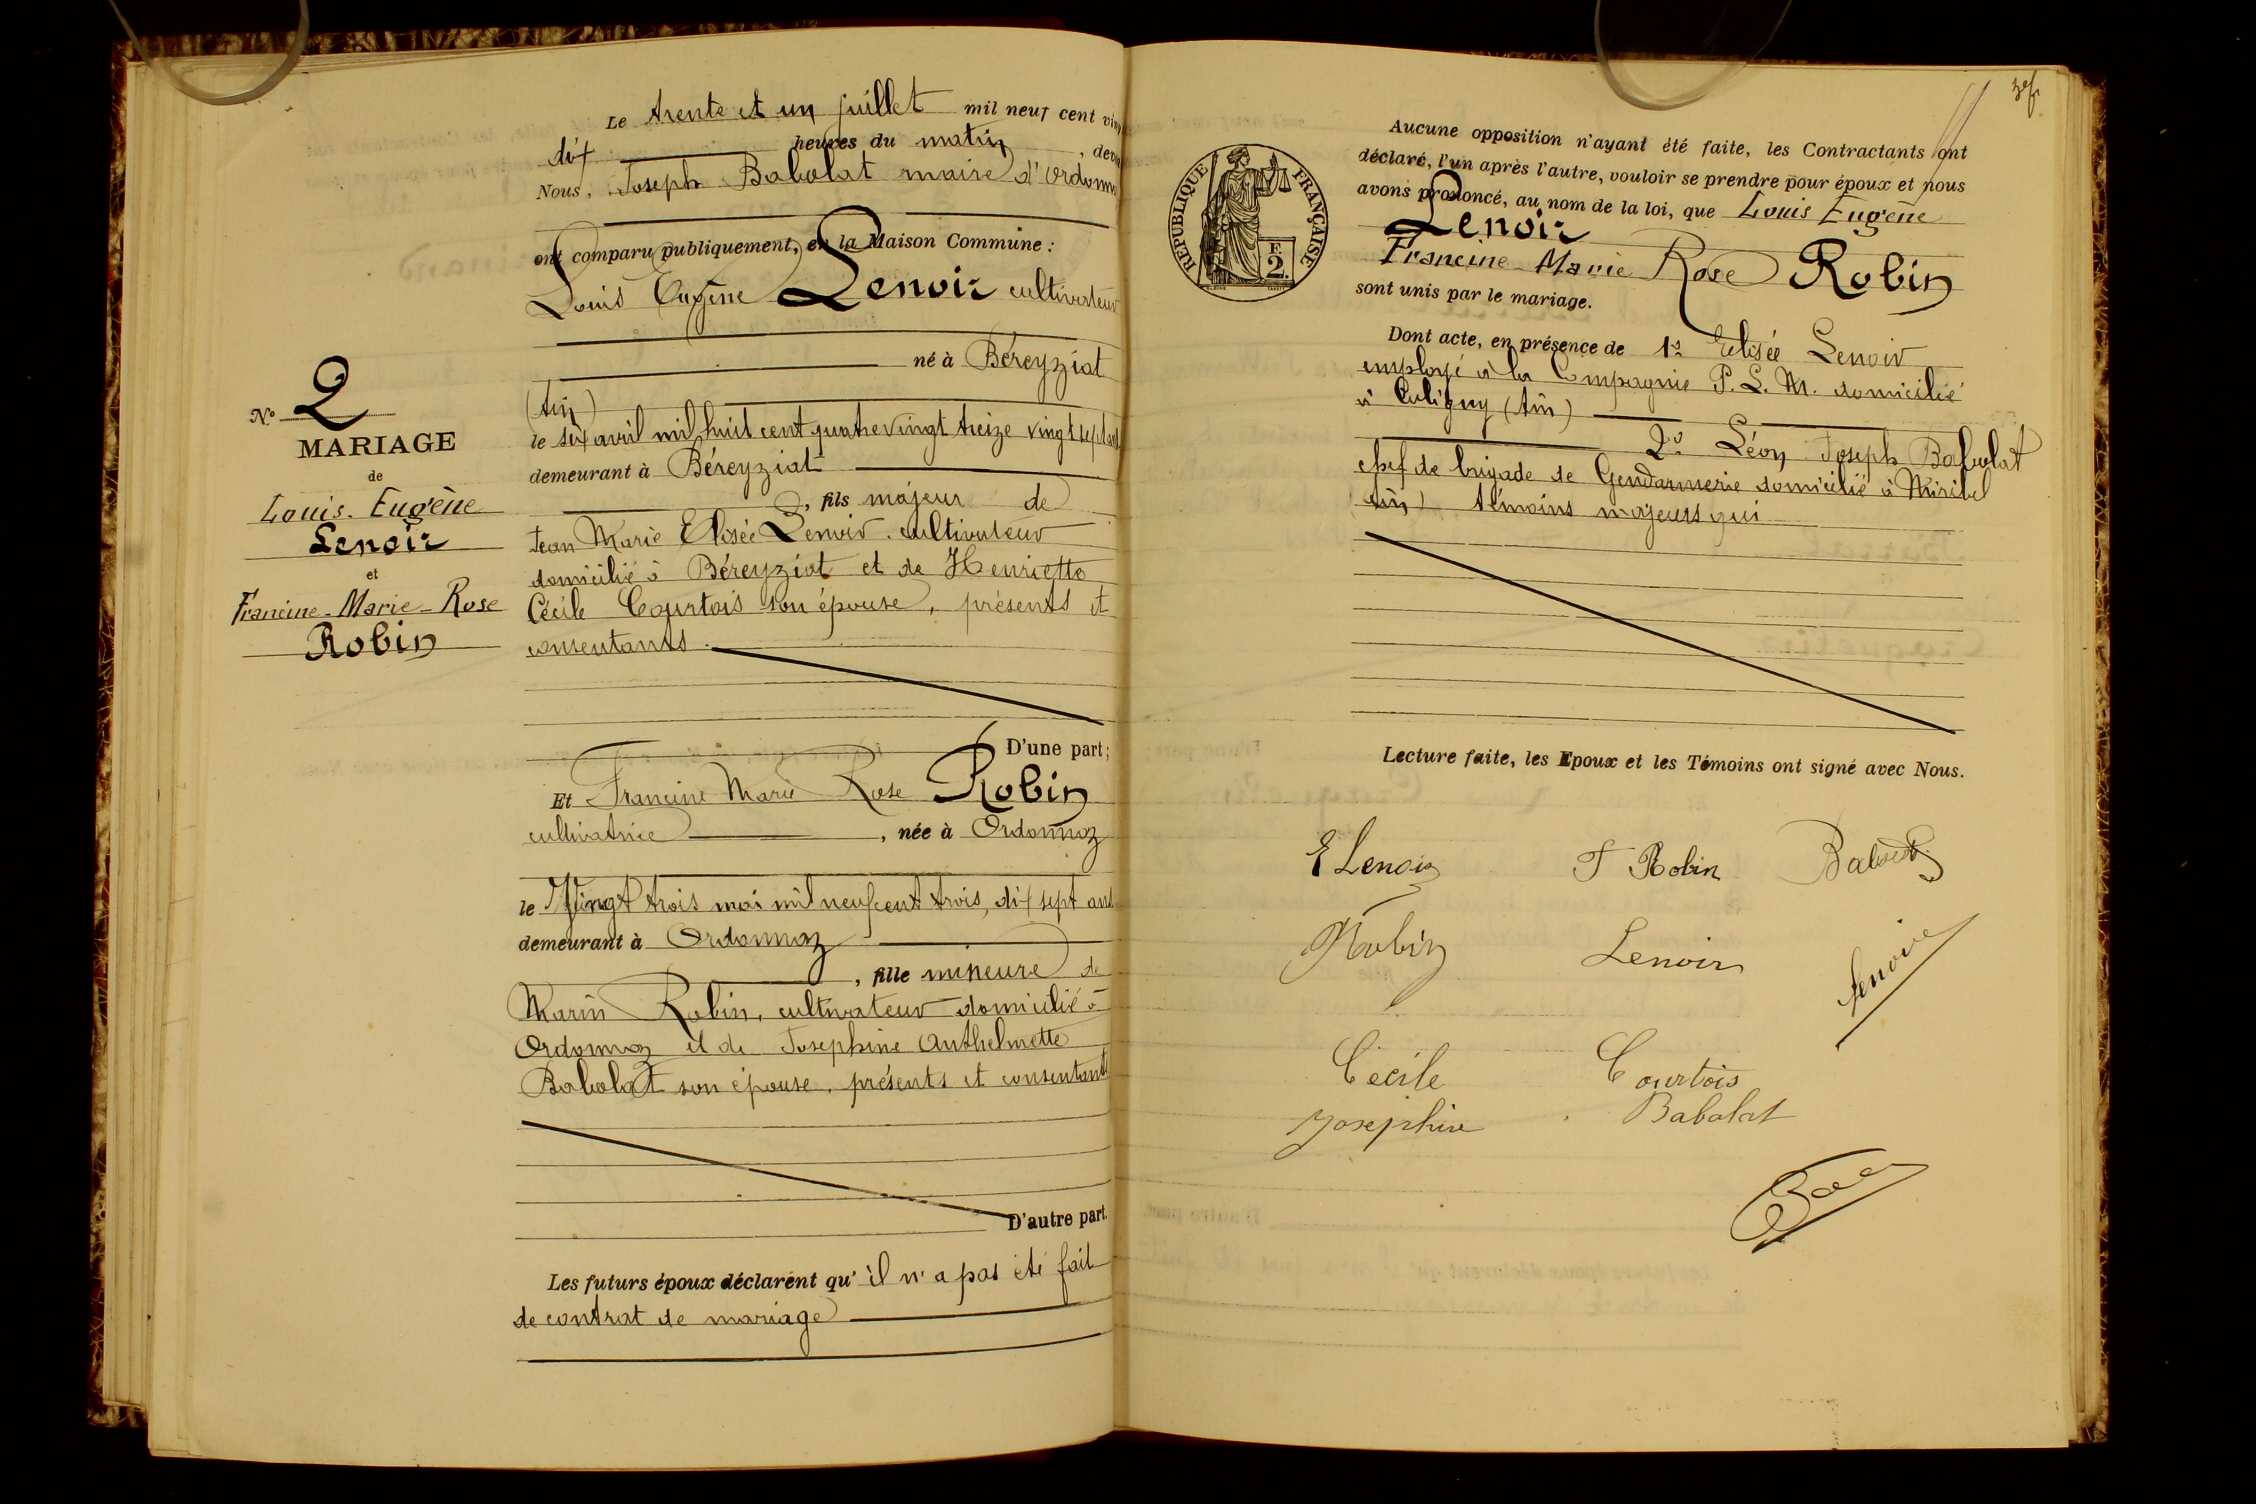 Le trente et un juillet mil neuf cent
dix heures du matin
Nous, Joseph Babolat maire
ont comparu publiquement, en la Maison Commune :
Louis Eugène Lenoir cultivateur
né à Béreyziat
(Ain)
le six avril mil huit cent quatre vingt treize vingt sept ans
demeurant à Béreyziat
, fils majeur de
Jean Marie Elisée Lenoir, cultivateur
domicilié à Béreyziat et de Henriette
Cécile Courtois son épouse, présents et
consentants.
D'une part;
Et Francine Marie Rose Robin
cultivatrice, née à Ordonnaz
le Vingt trois mai mil neuf cent trois, dix sept ans
demeurant à Ordonnaz
, fille mineure de
Marin Robin, cultivateur domicilié à
Ordonnaz et de Josephine Anthelmette
Babolat son épouse, présents et consentants
D'autre part.
Les futurs époux déclarent qu'il n'a pas été fait
de contrat de mariage
No 2
MARIAGE
de
Louis-Eugène
Lenoir
et
Francine-Marie-Rose
Robin
RÉPUBLIQUE FRANÇAISE
F.
2.
Aucune opposition n'ayant été faite, les Contractants ont
déclaré, l'un après l'autre, vouloir se prendre pour époux et nous
avons prononcé, au nom de la loi, que Louis Eugène
Lenoir
Francine Marie Rose Robin
sont unis par le mariage.
Dont acte, en présence de 1º Elisée Lenoir
employé à la Compagnie P. L. M. domicilié
à Coligny (Ain)
2º Léon Joseph Babolat
chef de brigade de Gendarmerie domicilié à Miribel
(Ain) témoins majeurs qui
Lecture faite, les Epoux et les Témoins ont signé avec Nous.
E Lenoir F Robin Babolat
Robin Lenoir Lenoir
Cécile Courtois
Josephine Babolat